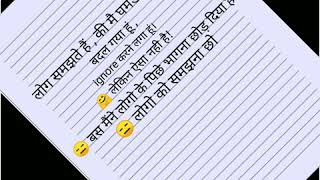 लोग समझते हैं, की मै घमंड
बदल गया हूं,
ignore करने लगा हूं!
🤗 लेकिन ऐसा नही है!
😑 बस मैंने लोगो के पिछे भागना छोड़ दिया है
😑 लोगो को समझना छो